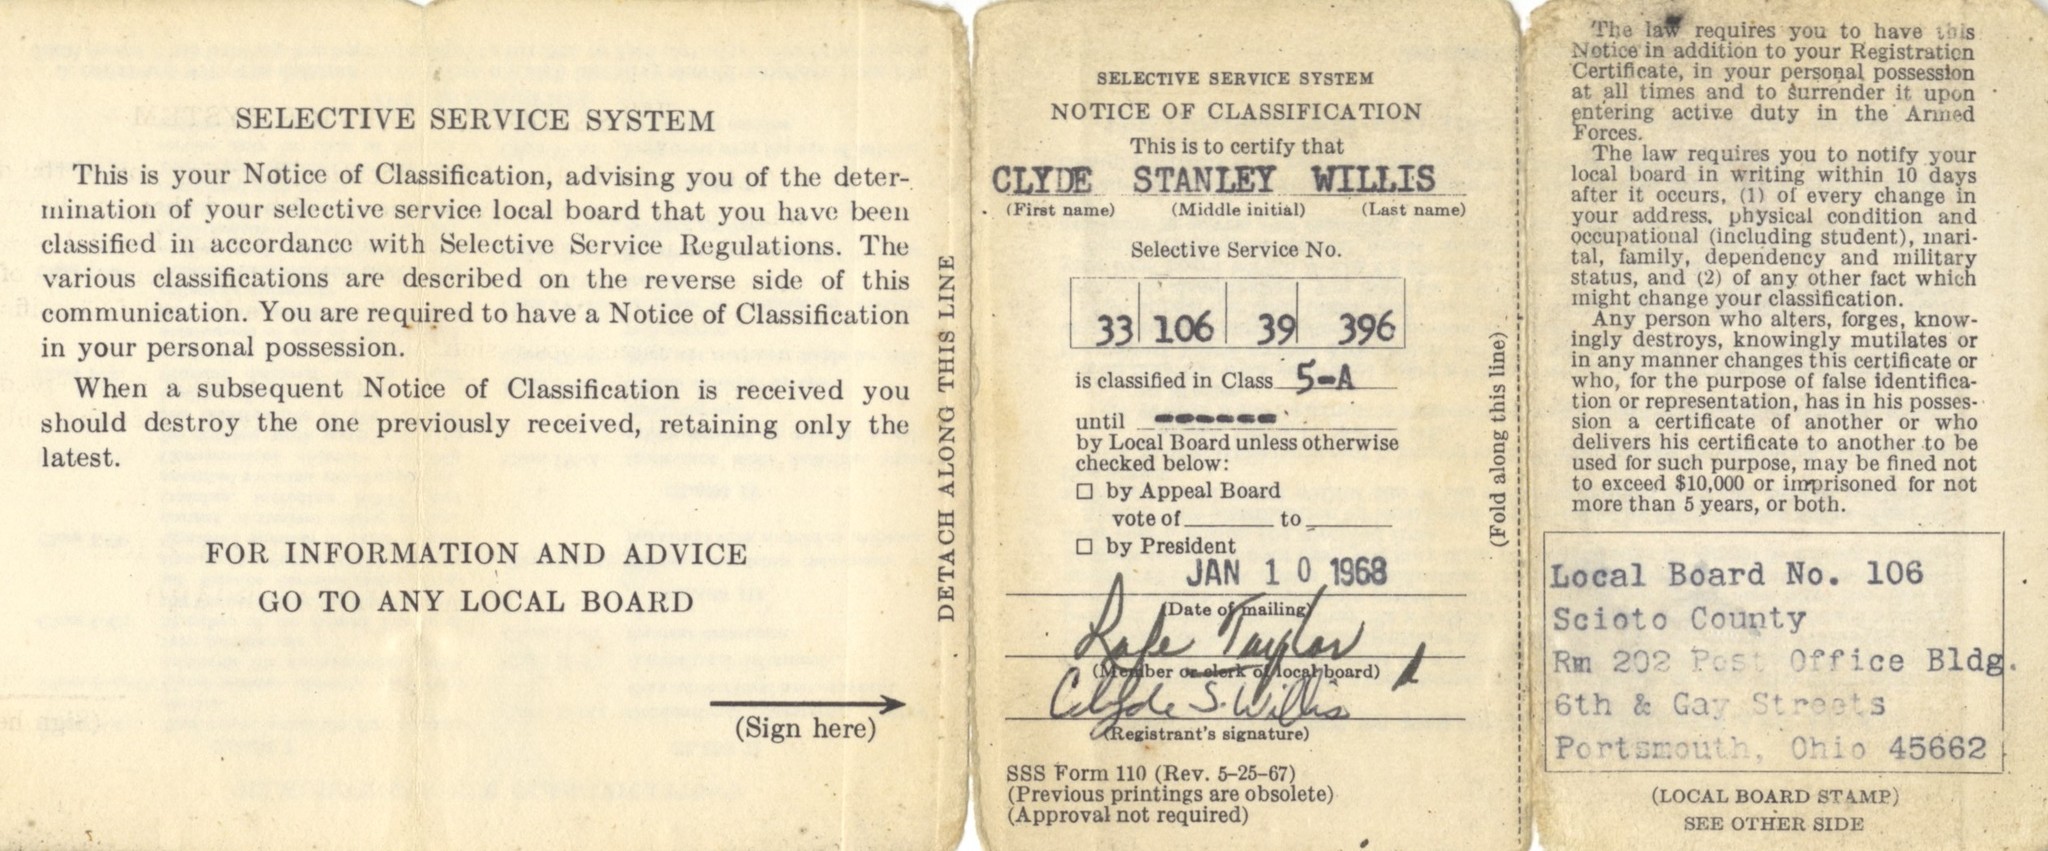 SELECTIVE SERVICE SYSTEM
This is your Notice of Classification, advising you of the deter-
mination of your selective service local board that you have been
classified in accordance with Selective Service Regulations. The
various classifications are described on the reverse side of this
communication. You are required to have a Notice of Classification
in your personal possession.
When a subsequent Notice of Classification is received you
should destroy the one previously received, retaining only the
latest.
FOR INFORMATION AND ADVICE
GO TO ANY LOCAL BOARD
(Sign here)
DETACH ALONG THIS LINE
SELECTIVE SERVICE SYSTEM
NOTICE OF CLASSIFICATION
This is to certify that
CLYDE STANLEY WILLIS
(First name) (Middle initial) (Last name)
Selective Service No.
33 106 39 396
is classified in Class 5-A
until ------
by Local Board unless otherwise
checked below:
☐ by Appeal Board
vote of ______ to ______
☐ by President
JAN 10 1968
(Date of mailing)
Rafe Taylor
(Member or clerk of local board)
Clyde S. Willis
(Registrant's signature)
SSS Form 110 (Rev. 5-25-67)
(Previous printings are obsolete)
(Approval not required)
(Fold along this line)
The law requires you to have this
Notice in addition to your Registration
Certificate, in your personal possession
at all times and to surrender it upon
entering active duty in the Armed
Forces.
The law requires you to notify your
local board in writing within 10 days
after it occurs, (1) of every change in
your address, physical condition and
occupational (including student), mari-
tal, family, dependency and military
status, and (2) of any other fact which
might change your classification.
Any person who alters, forges, know-
ingly destroys, knowingly mutilates or
in any manner changes this certificate or
who, for the purpose of false identifica-
tion or representation, has in his posses-
sion a certificate of another or who
delivers his certificate to another to be
used for such purpose, may be fined not
to exceed $10,000 or imprisoned for not
more than 5 years, or both.
Local Board No. 106
Scioto County
Rm 202 Post Office Bldg.
6th & Gay Streets
Portsmouth, Ohio 45662
(LOCAL BOARD STAMP)
SEE OTHER SIDE